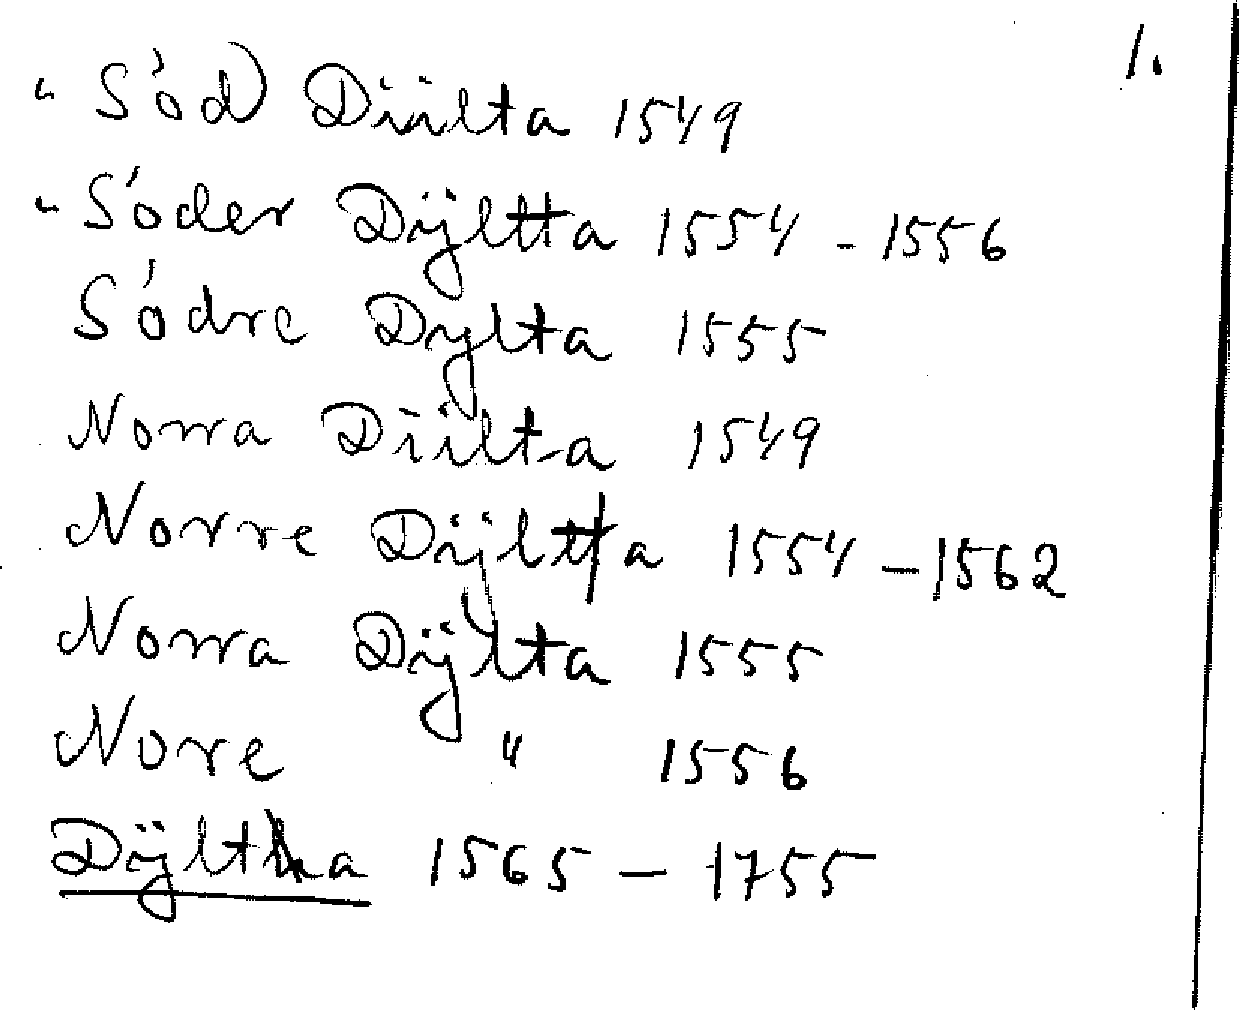 1.
" Sód) Diilta 1549
" Sóder Dÿltta 1554 - 1556
Sódre Dylta 1555
Norra Diilta 1549
Norre Dÿltta 1554 - 1562
Norra Dÿlta 1555
Nore " 1556
Dÿltha 1565 - 1755